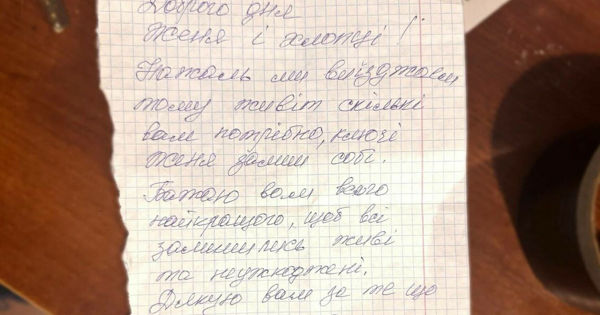 Доброго дня
Женя і хлопці!
Нажаль ми виїзджаєм
тому живіт скількі
вам потрібно, ключі
Женя залиш собі.
Бажаю вам всього
найкращого, щоб всі
залишились живі
та неушкоджені.
Дякую вам за те що